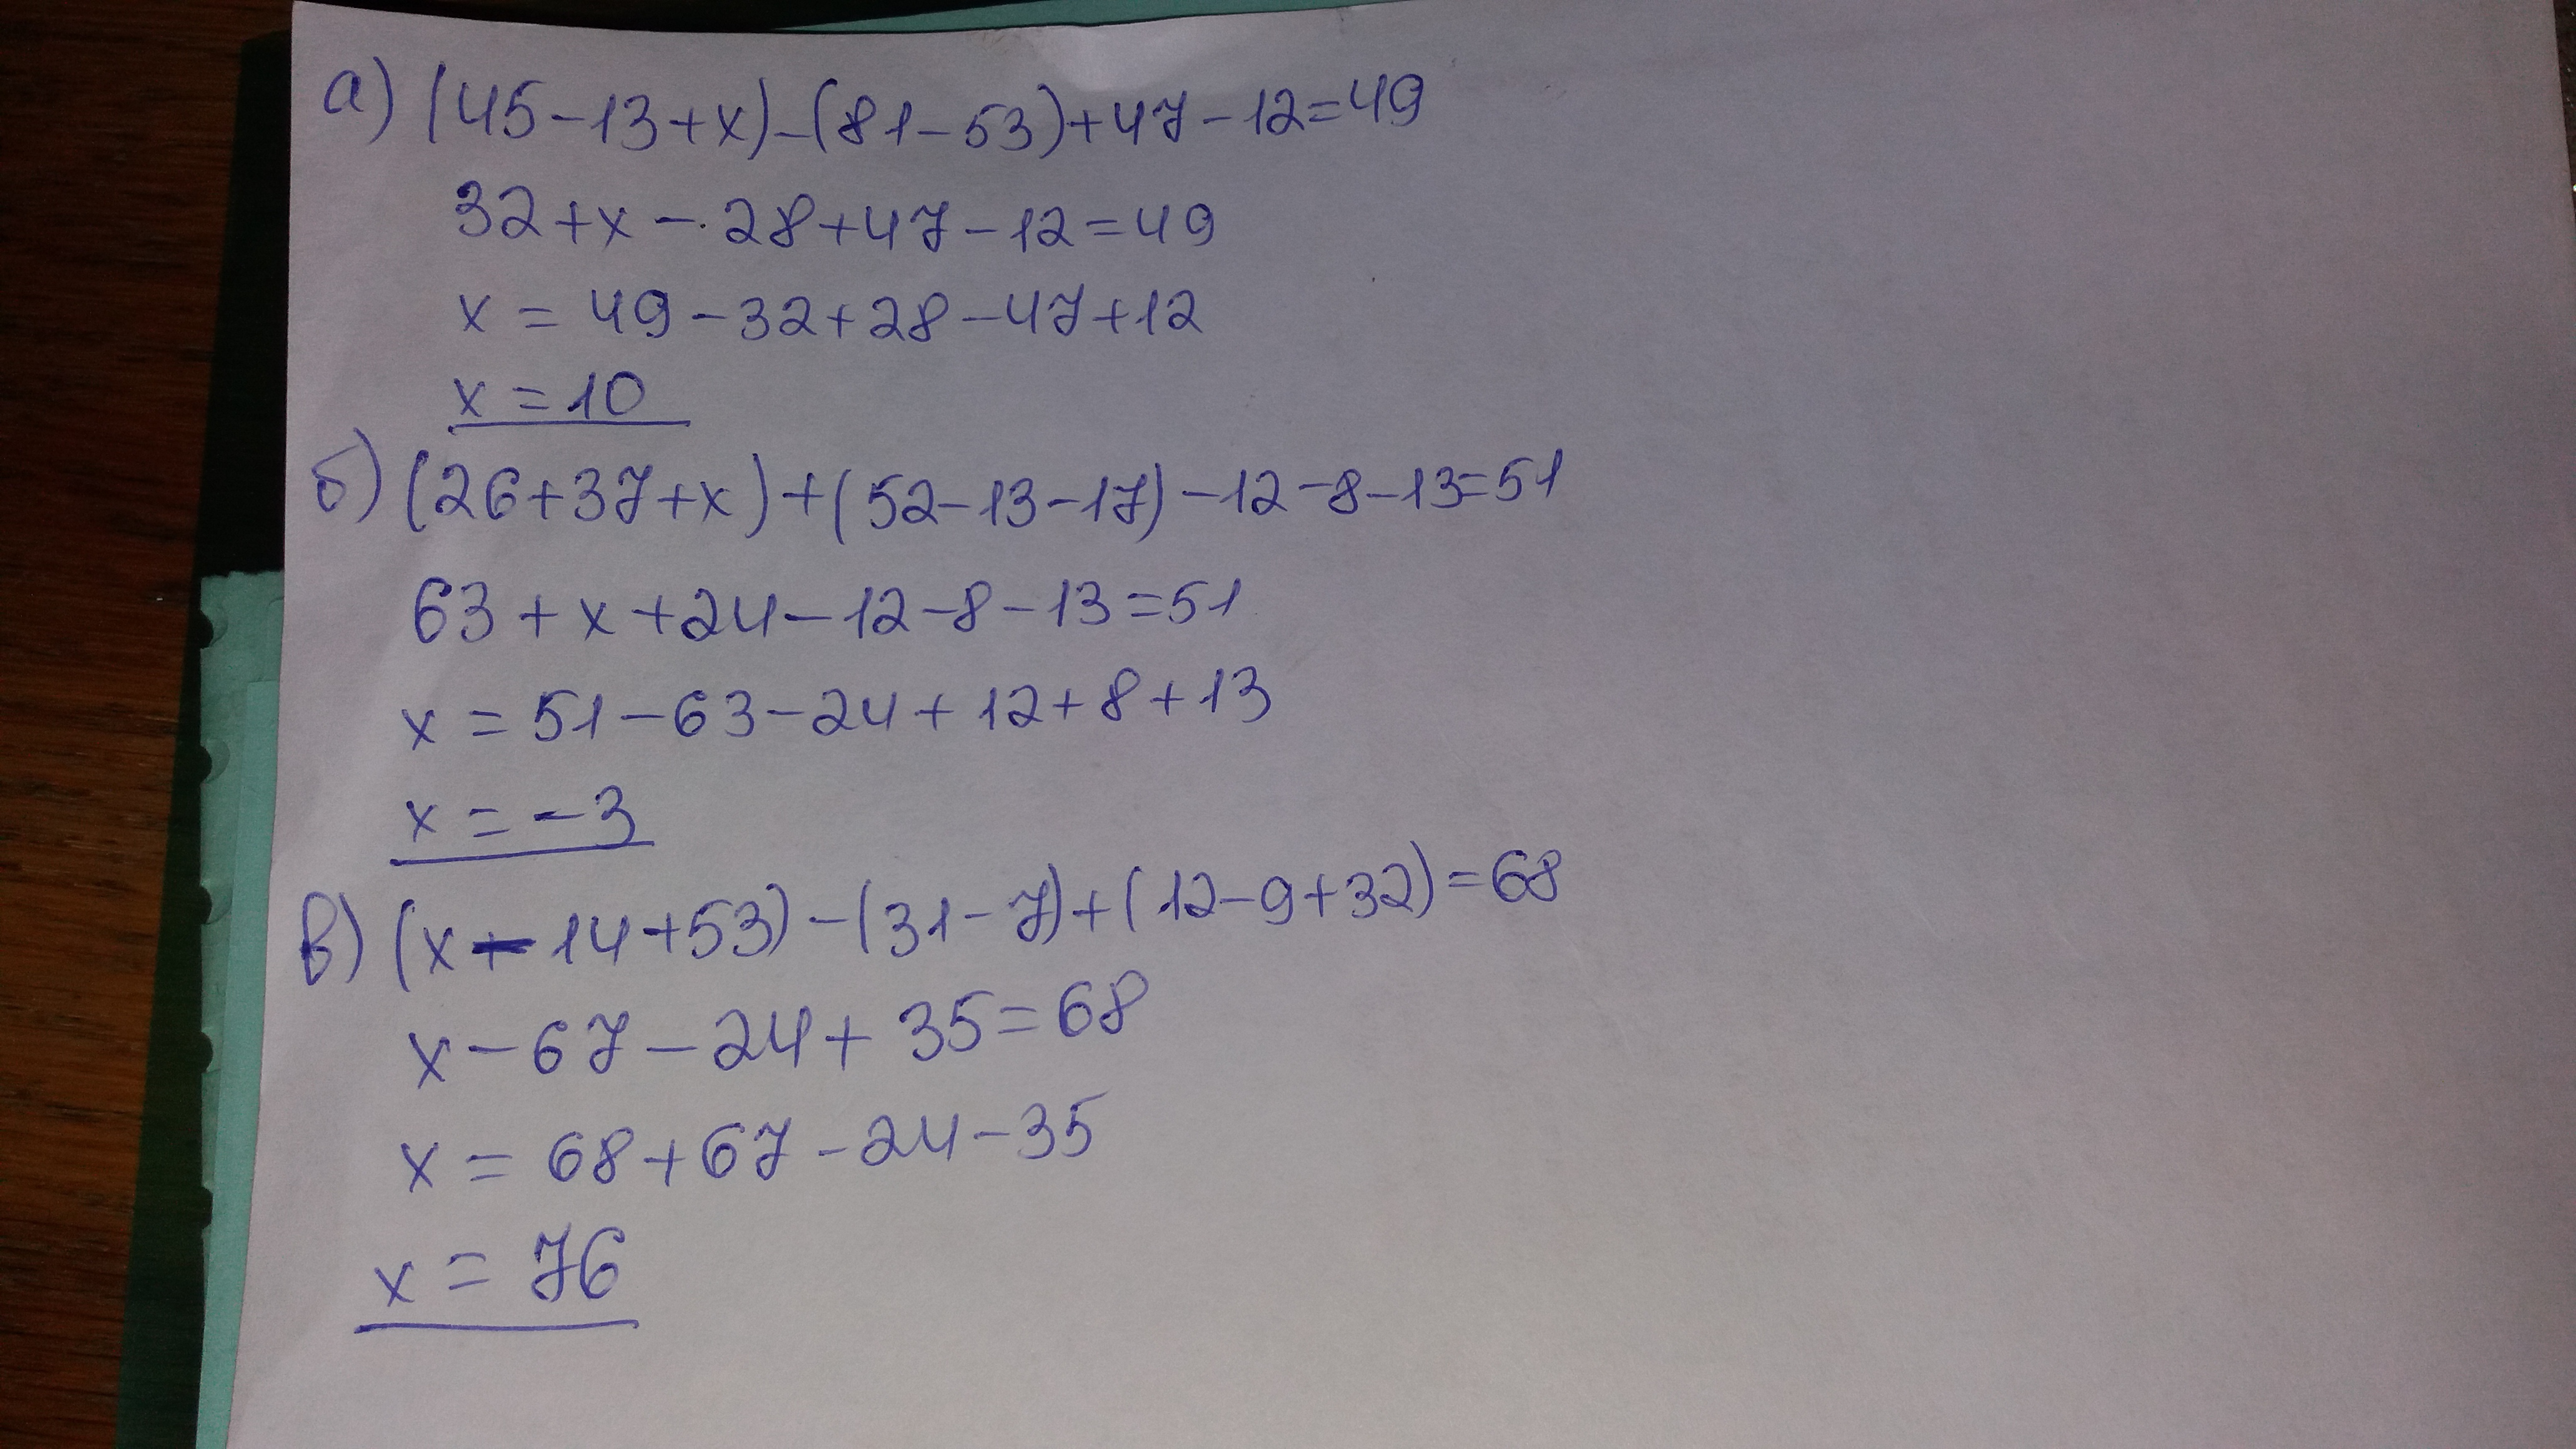 а) (45-13+x)-(81-53)+47-12=49
32+x-28+47-12=49
x=49-32+28-47+12
x=10
б) (26+37+x)+(52-13-17)-12-8-13=51
63+x+24-12-8-13=51
x=51-63-24+12+8+13
x=-3
в) (x-14+53)-(31-7)+(12-9+32)=68
x-67-24+35=68
x=68+67-24-35
x=76